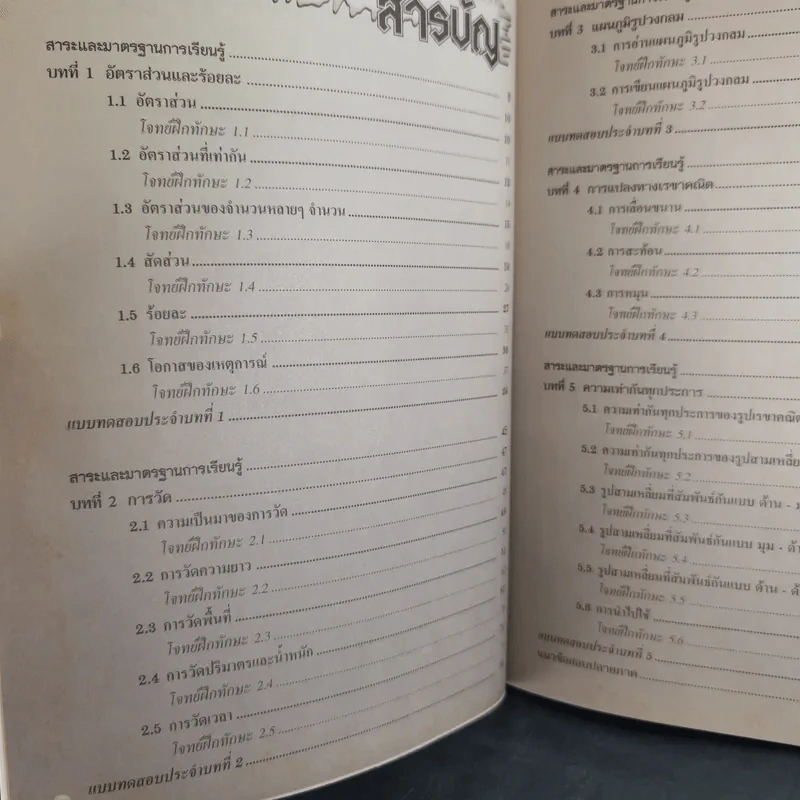 สารบัญ
สาระและมาตรฐานการเรียนรู้
บทที่ 1 อัตราส่วนและร้อยละ 9
1.1 อัตราส่วน 10
โจทย์ฝึกทักษะ 1.1 10
1.2 อัตราส่วนที่เท่ากัน
โจทย์ฝึกทักษะ 1.2
1.3 อัตราส่วนของจำนวนหลายๆ จำนวน
โจทย์ฝึกทักษะ 1.3
1.4 สัดส่วน
โจทย์ฝึกทักษะ 1.4
1.5 ร้อยละ 27
โจทย์ฝึกทักษะ 1.5
1.6 โอกาสของเหตุการณ์
โจทย์ฝึกทักษะ 1.6
แบบทดสอบประจำบทที่ 1
สาระและมาตรฐานการเรียนรู้ 45
บทที่ 2 การวัด 47
2.1 ความเป็นมาของการวัด 47
โจทย์ฝึกทักษะ 2.1
2.2 การวัดความยาว
โจทย์ฝึกทักษะ 2.2
2.3 การวัดพื้นที่
โจทย์ฝึกทักษะ 2.3
2.4 การวัดปริมาตรและน้ำหนัก
โจทย์ฝึกทักษะ 2.4
2.5 การวัดเวลา
โจทย์ฝึกทักษะ 2.5
แบบทดสอบประจำบทที่ 2
สาระและมาตรฐานการเรียนรู้
บทที่ 3 แผนภูมิรูปวงกลม
3.1 การอ่านแผนภูมิรูปวงกลม
โจทย์ฝึกทักษะ 3.1
3.2 การเขียนแผนภูมิรูปวงกลม
โจทย์ฝึกทักษะ 3.2
แบบทดสอบประจำบทที่ 3
สาระและมาตรฐานการเรียนรู้
บทที่ 4 การแปลงทางเรขาคณิต
4.1 การเลื่อนขนาน
โจทย์ฝึกทักษะ 4.1
4.2 การสะท้อน
โจทย์ฝึกทักษะ 4.2
4.3 การหมุน
โจทย์ฝึกทักษะ 4.3
แบบทดสอบประจำบทที่ 4
สาระและมาตรฐานการเรียนรู้
บทที่ 5 ความเท่ากันทุกประการ
5.1 ความเท่ากันทุกประการของรูปเรขาคณิต
โจทย์ฝึกทักษะ 5.1
5.2 ความเท่ากันทุกประการของรูปสามเหลี่ย
โจทย์ฝึกทักษะ 5.2
5.3 รูปสามเหลี่ยมที่สัมพันธ์กันแบบ ด้าน - ม
โจทย์ฝึกทักษะ 5.3
5.4 รูปสามเหลี่ยมที่สัมพันธ์กันแบบ มุม - ด้า
โจทย์ฝึกทักษะ 5.4
5.5 รูปสามเหลี่ยมที่สัมพันธ์กันแบบ ด้าน - ด้
โจทย์ฝึกทักษะ 5.5
5.6 การนำไปใช้
โจทย์ฝึกทักษะ 5.6
แบบทดสอบประจำบทที่ 5
แนวข้อสอบปลายภาค